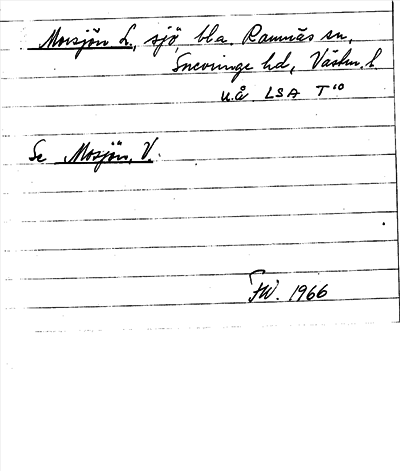 Morsjön L., sjö, bl.a. Ramnäs sn,
Snevringe hd, Västm. l.
u.å LSA T10
Se Mosjön, V.
FW. 1966